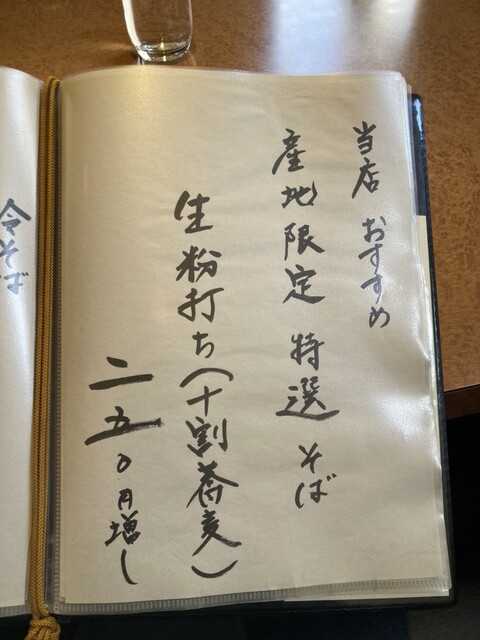 当店 おすすめ
産地限定 特選 そば
生粉打ち(十割蕎麦)
二五〇円増し
冷そば